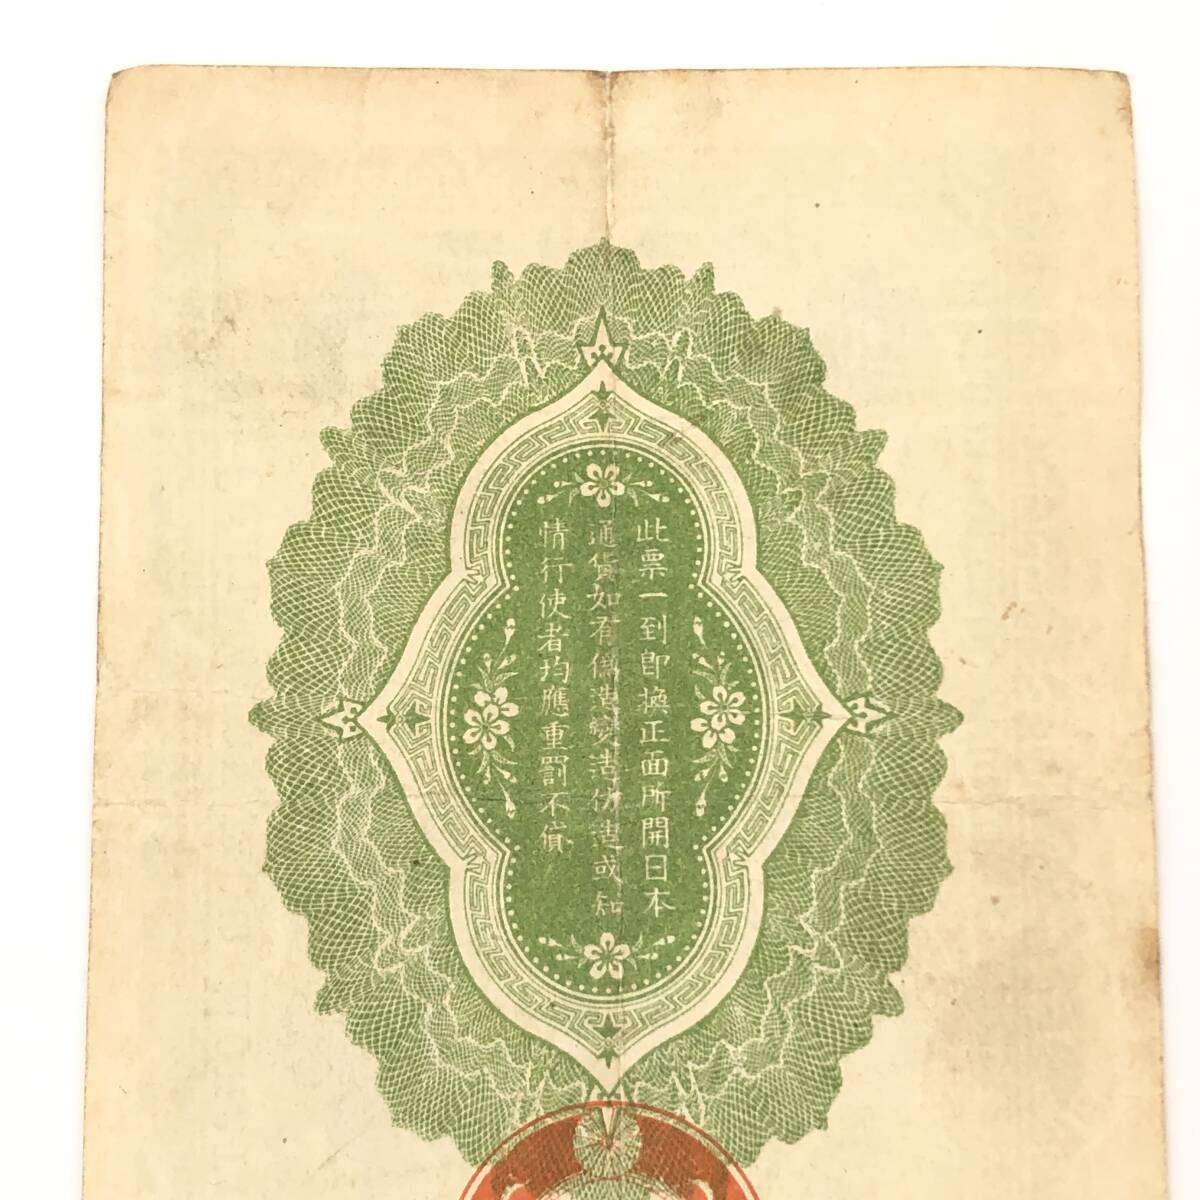 此票一到即換正面所開日本
通貨如有偽造變造仿造或知
情行使者均應重罰不貸